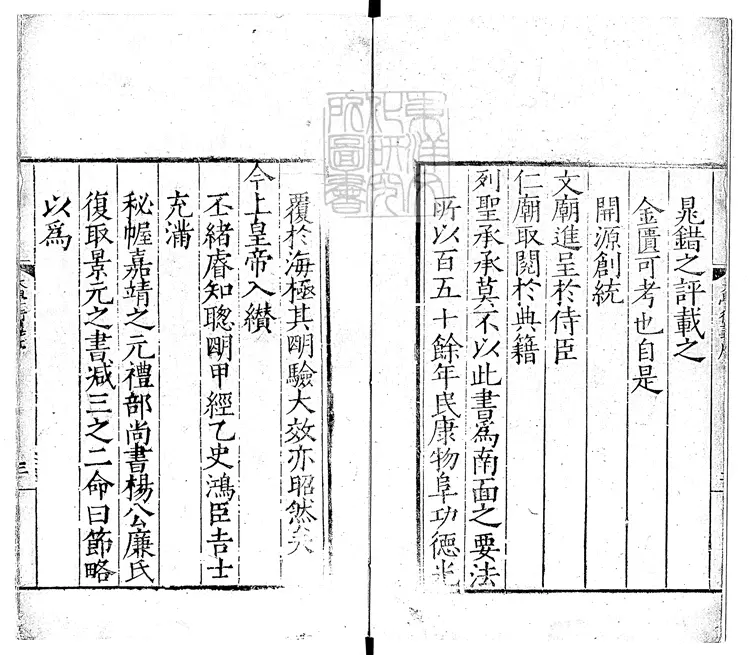 晁錯之評載之
金匱可考也自是
開源創統
文廟進呈於侍臣
仁廟取閱於典籍
列聖承承莫不以此書為南面之要法
所以百五十餘年民康物阜功德光
覆於海極其明驗大效亦昭然矣
今上皇帝入纉
丕緒睿知聰明甲經乙史鴻臣吉士
充滿
秘幄嘉靖之元禮部尚書楊公廉氏
復取景元之書减三之二命曰節略
以為
三
東洋文
化研究
所圖書